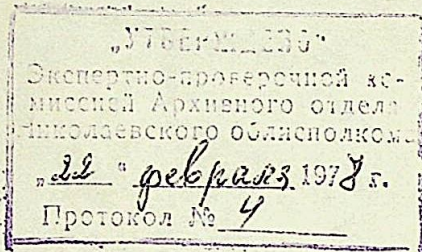 „УТВЕРЖДЕНО"
Экспертно-проверочной ко-
миссией Архивного отдела
Николаевского облисполкома
„22" февраля 1978 г.
Протокол № 4